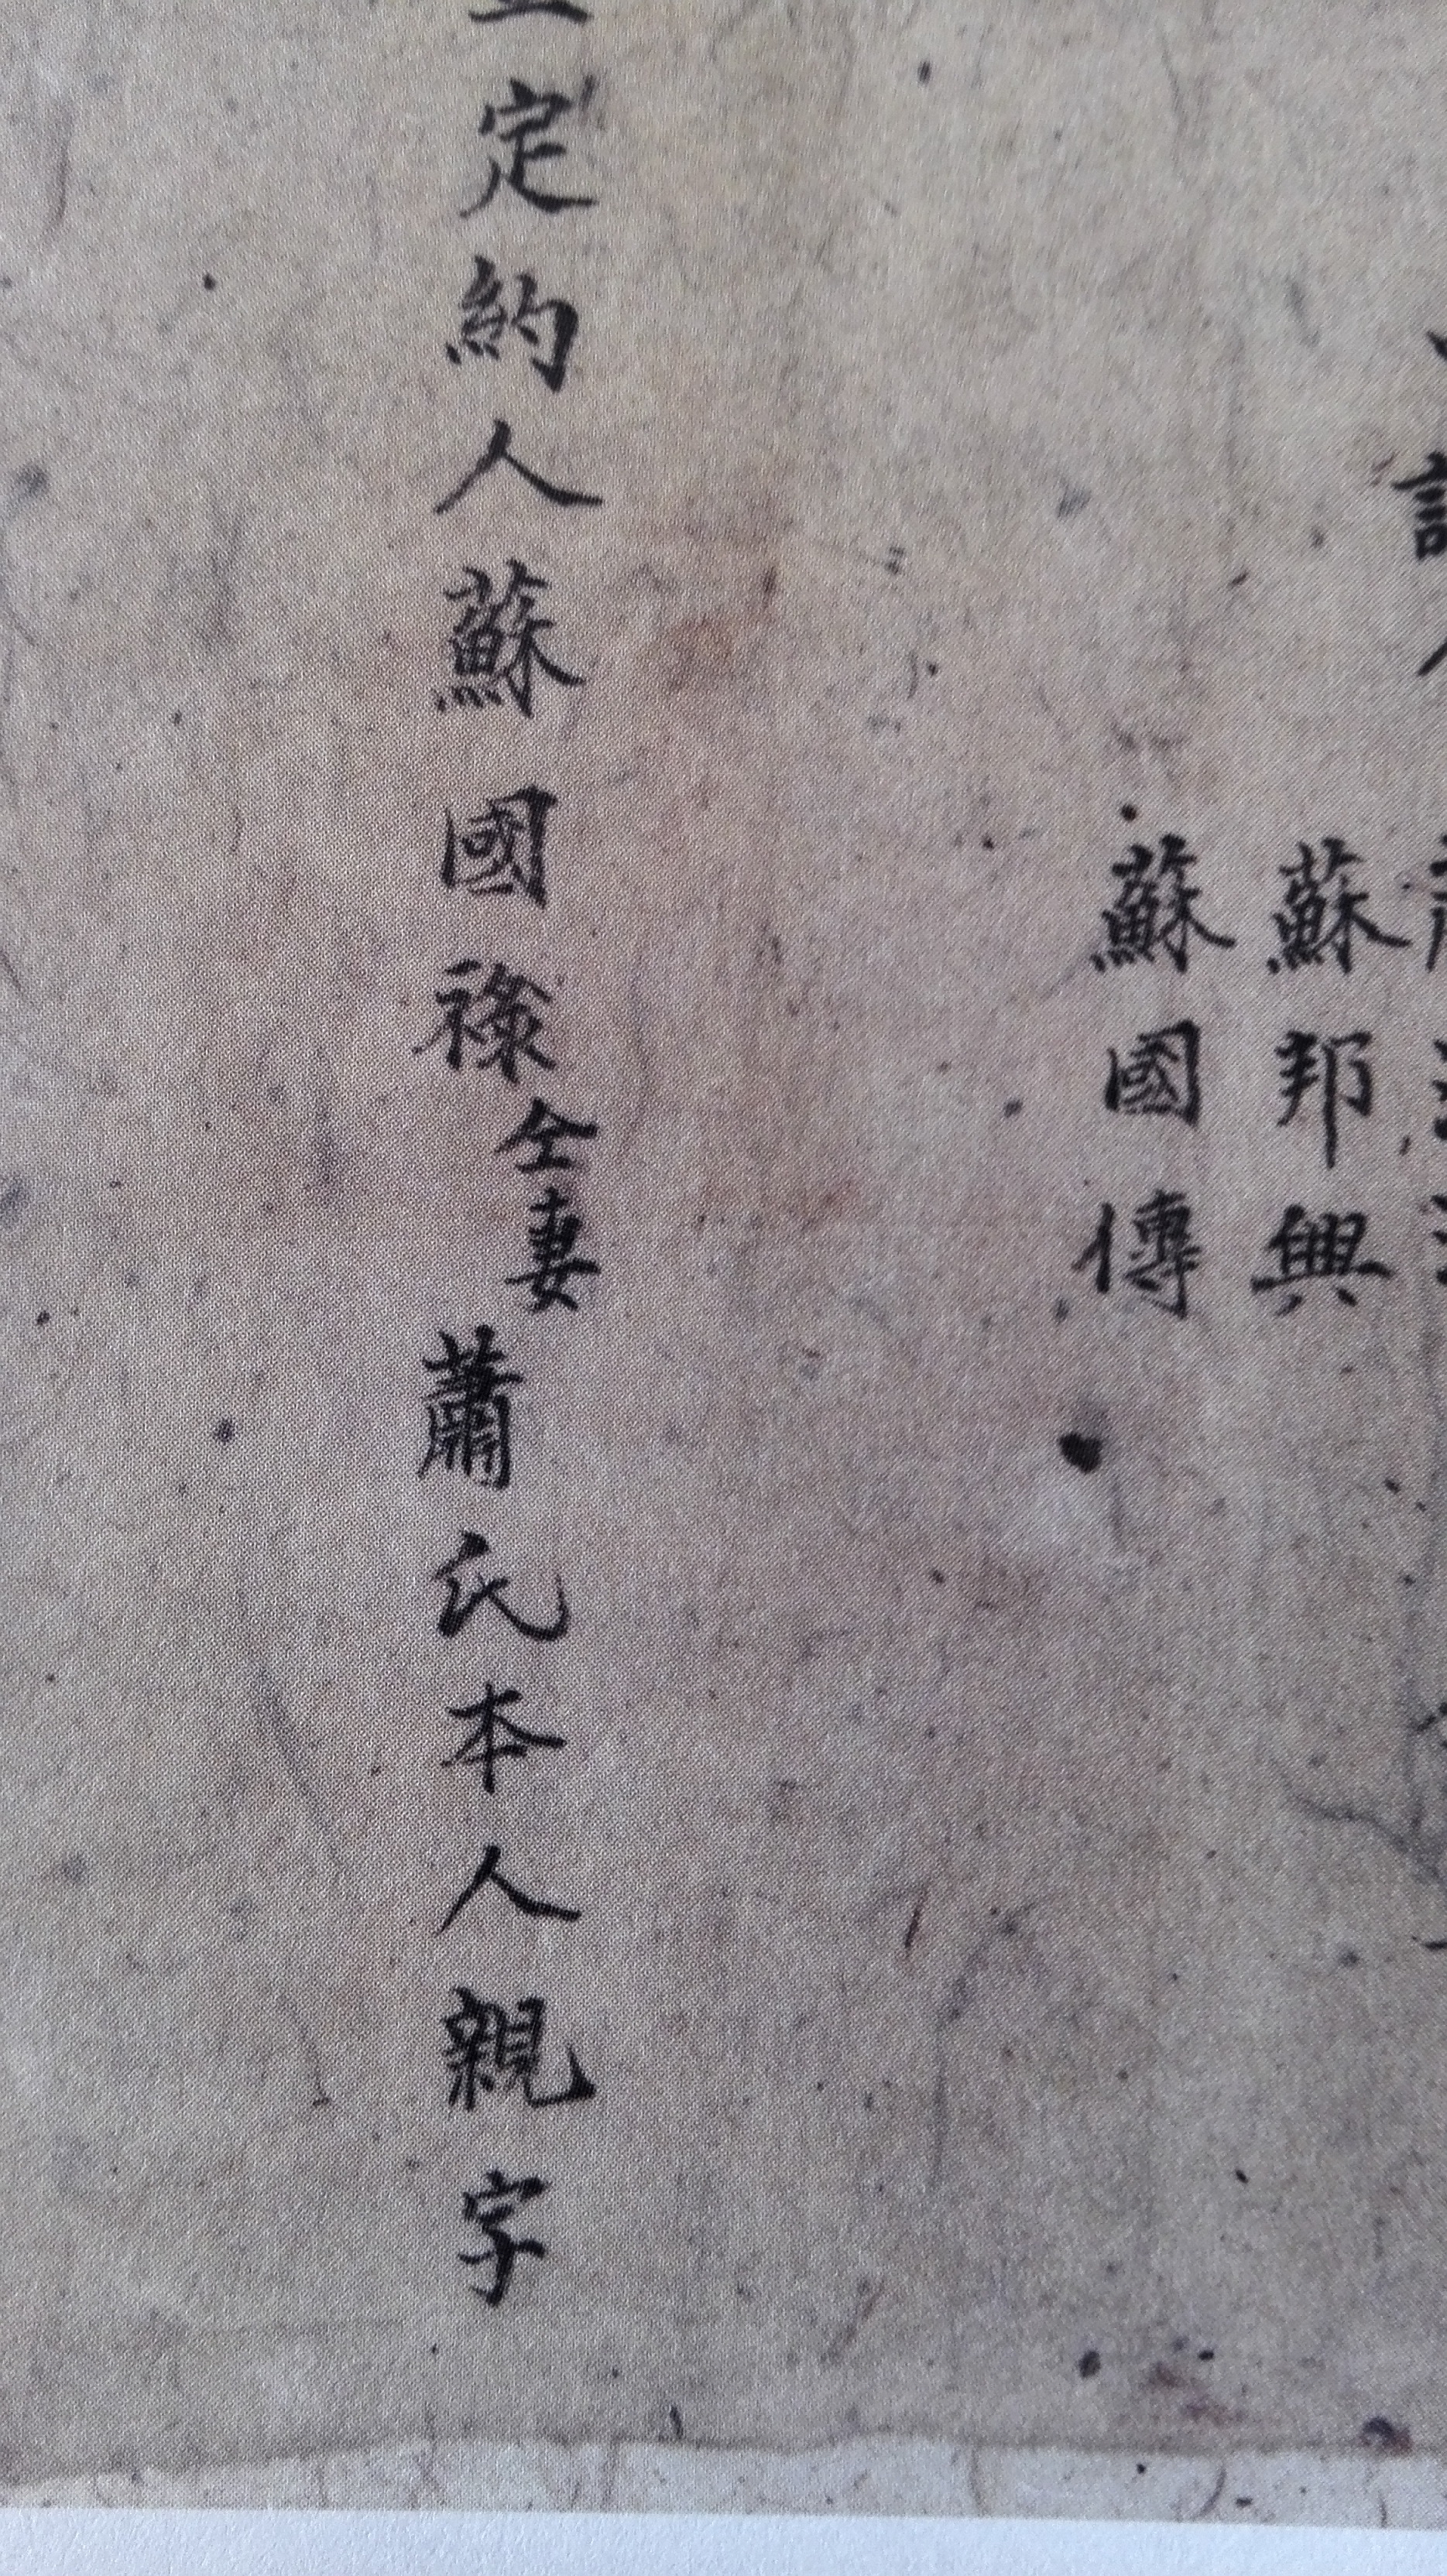 蘇邦興
蘇國傳
定約人蘇國祿仝妻蕭氏本人親字